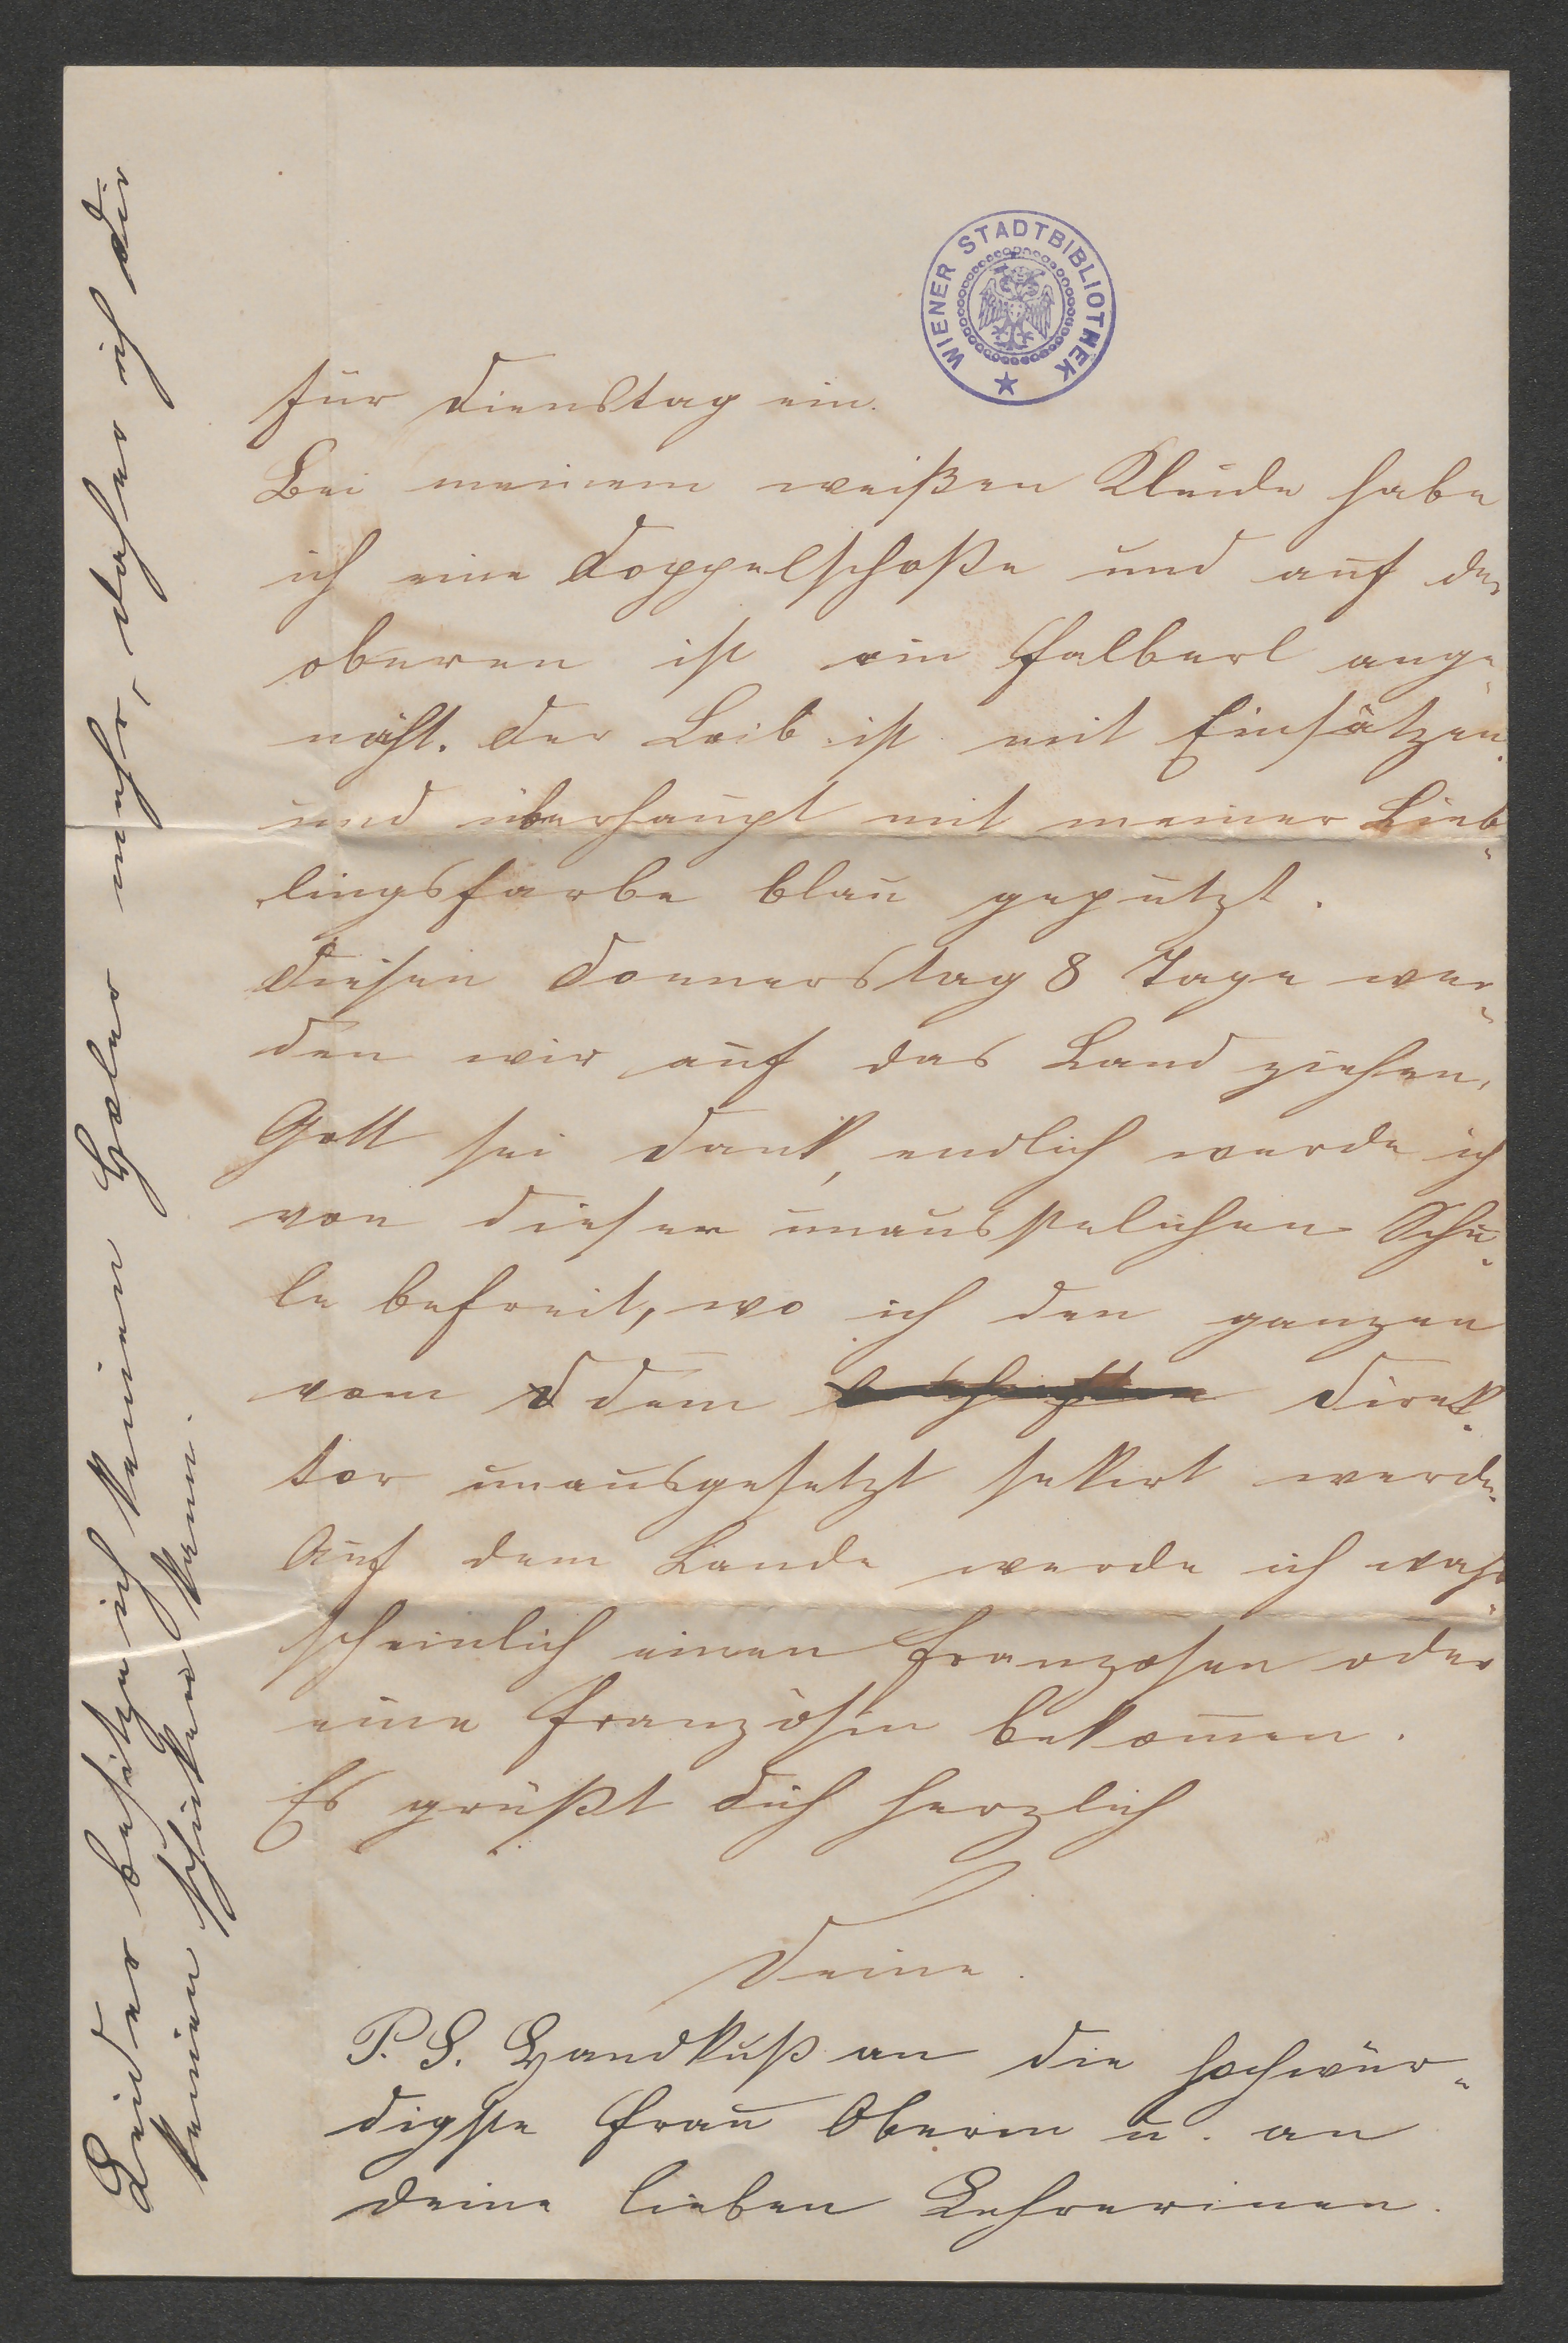 WIENER STADTBIBLIOTHEK
für Dienstag ein.
Bei meinem weißen Kleide habe
ich eine Doppelschoße und auf der
oberen ist ein Falberl ange-
näht. Der Leib ist mit Einsätzen
und überhaupt mit meiner Lieb-
lingsfarbe blau geputzt.
Diesen Donnerstag 8 Tage wer-
den wir auf das Land ziehen,
Gott sei Dank, endlich werde ich
von dieser unausstelichen Schu-
le befreit, wo ich den ganzen
vom D dem Direk-
tor unausgesetzt sekirt werde.
Auf dem Lande werde ich wahr-
scheinlich einen Franzosen oder
eine Französin bekomen.
Es grüßt Dich herzlich
Deine.
P. S. Handkuß an die hochwür-
digste Frau Oberin u. an
deine lieben Lehrerinen.
Leider besitze ich keinen Holer mehr, daher ich dir
keinen schiken kann.